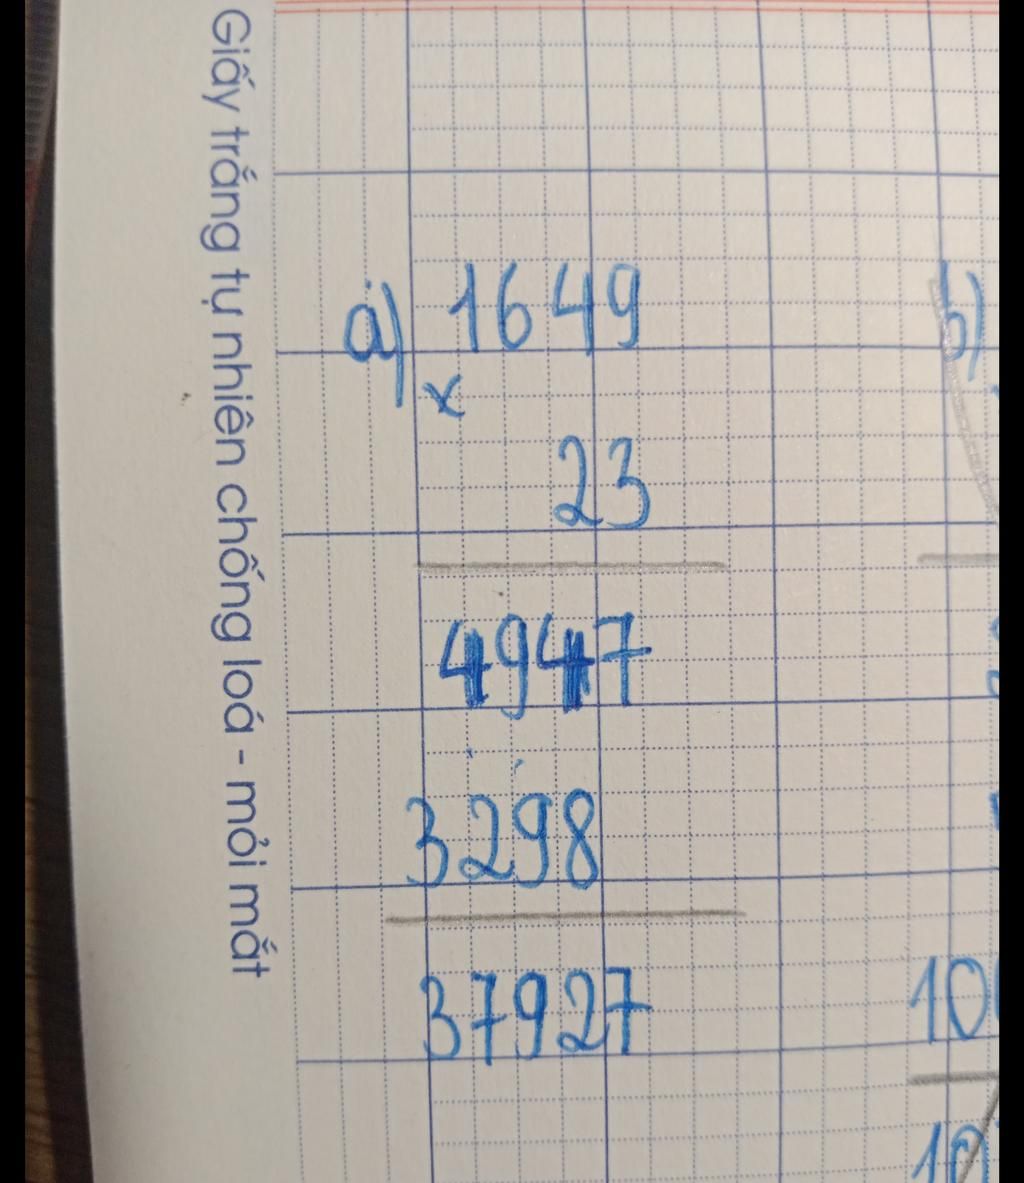 Giấy trắng tự nhiên chống loá - mỏi mắt
a) 1649
x
23
4947
3298
37927
b)
10
10